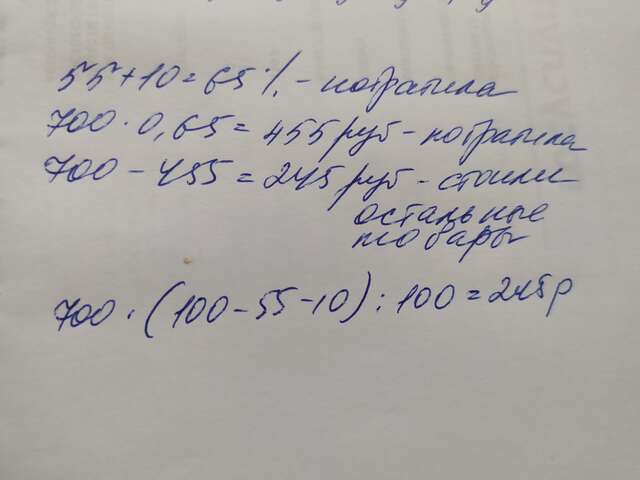 55+10=65% - потратила
700 · 0,65 = 455 руб - потратила
700 - 455 = 245 руб - стоили
остальные
товары
700 · (100-55-10) : 100 = 245р